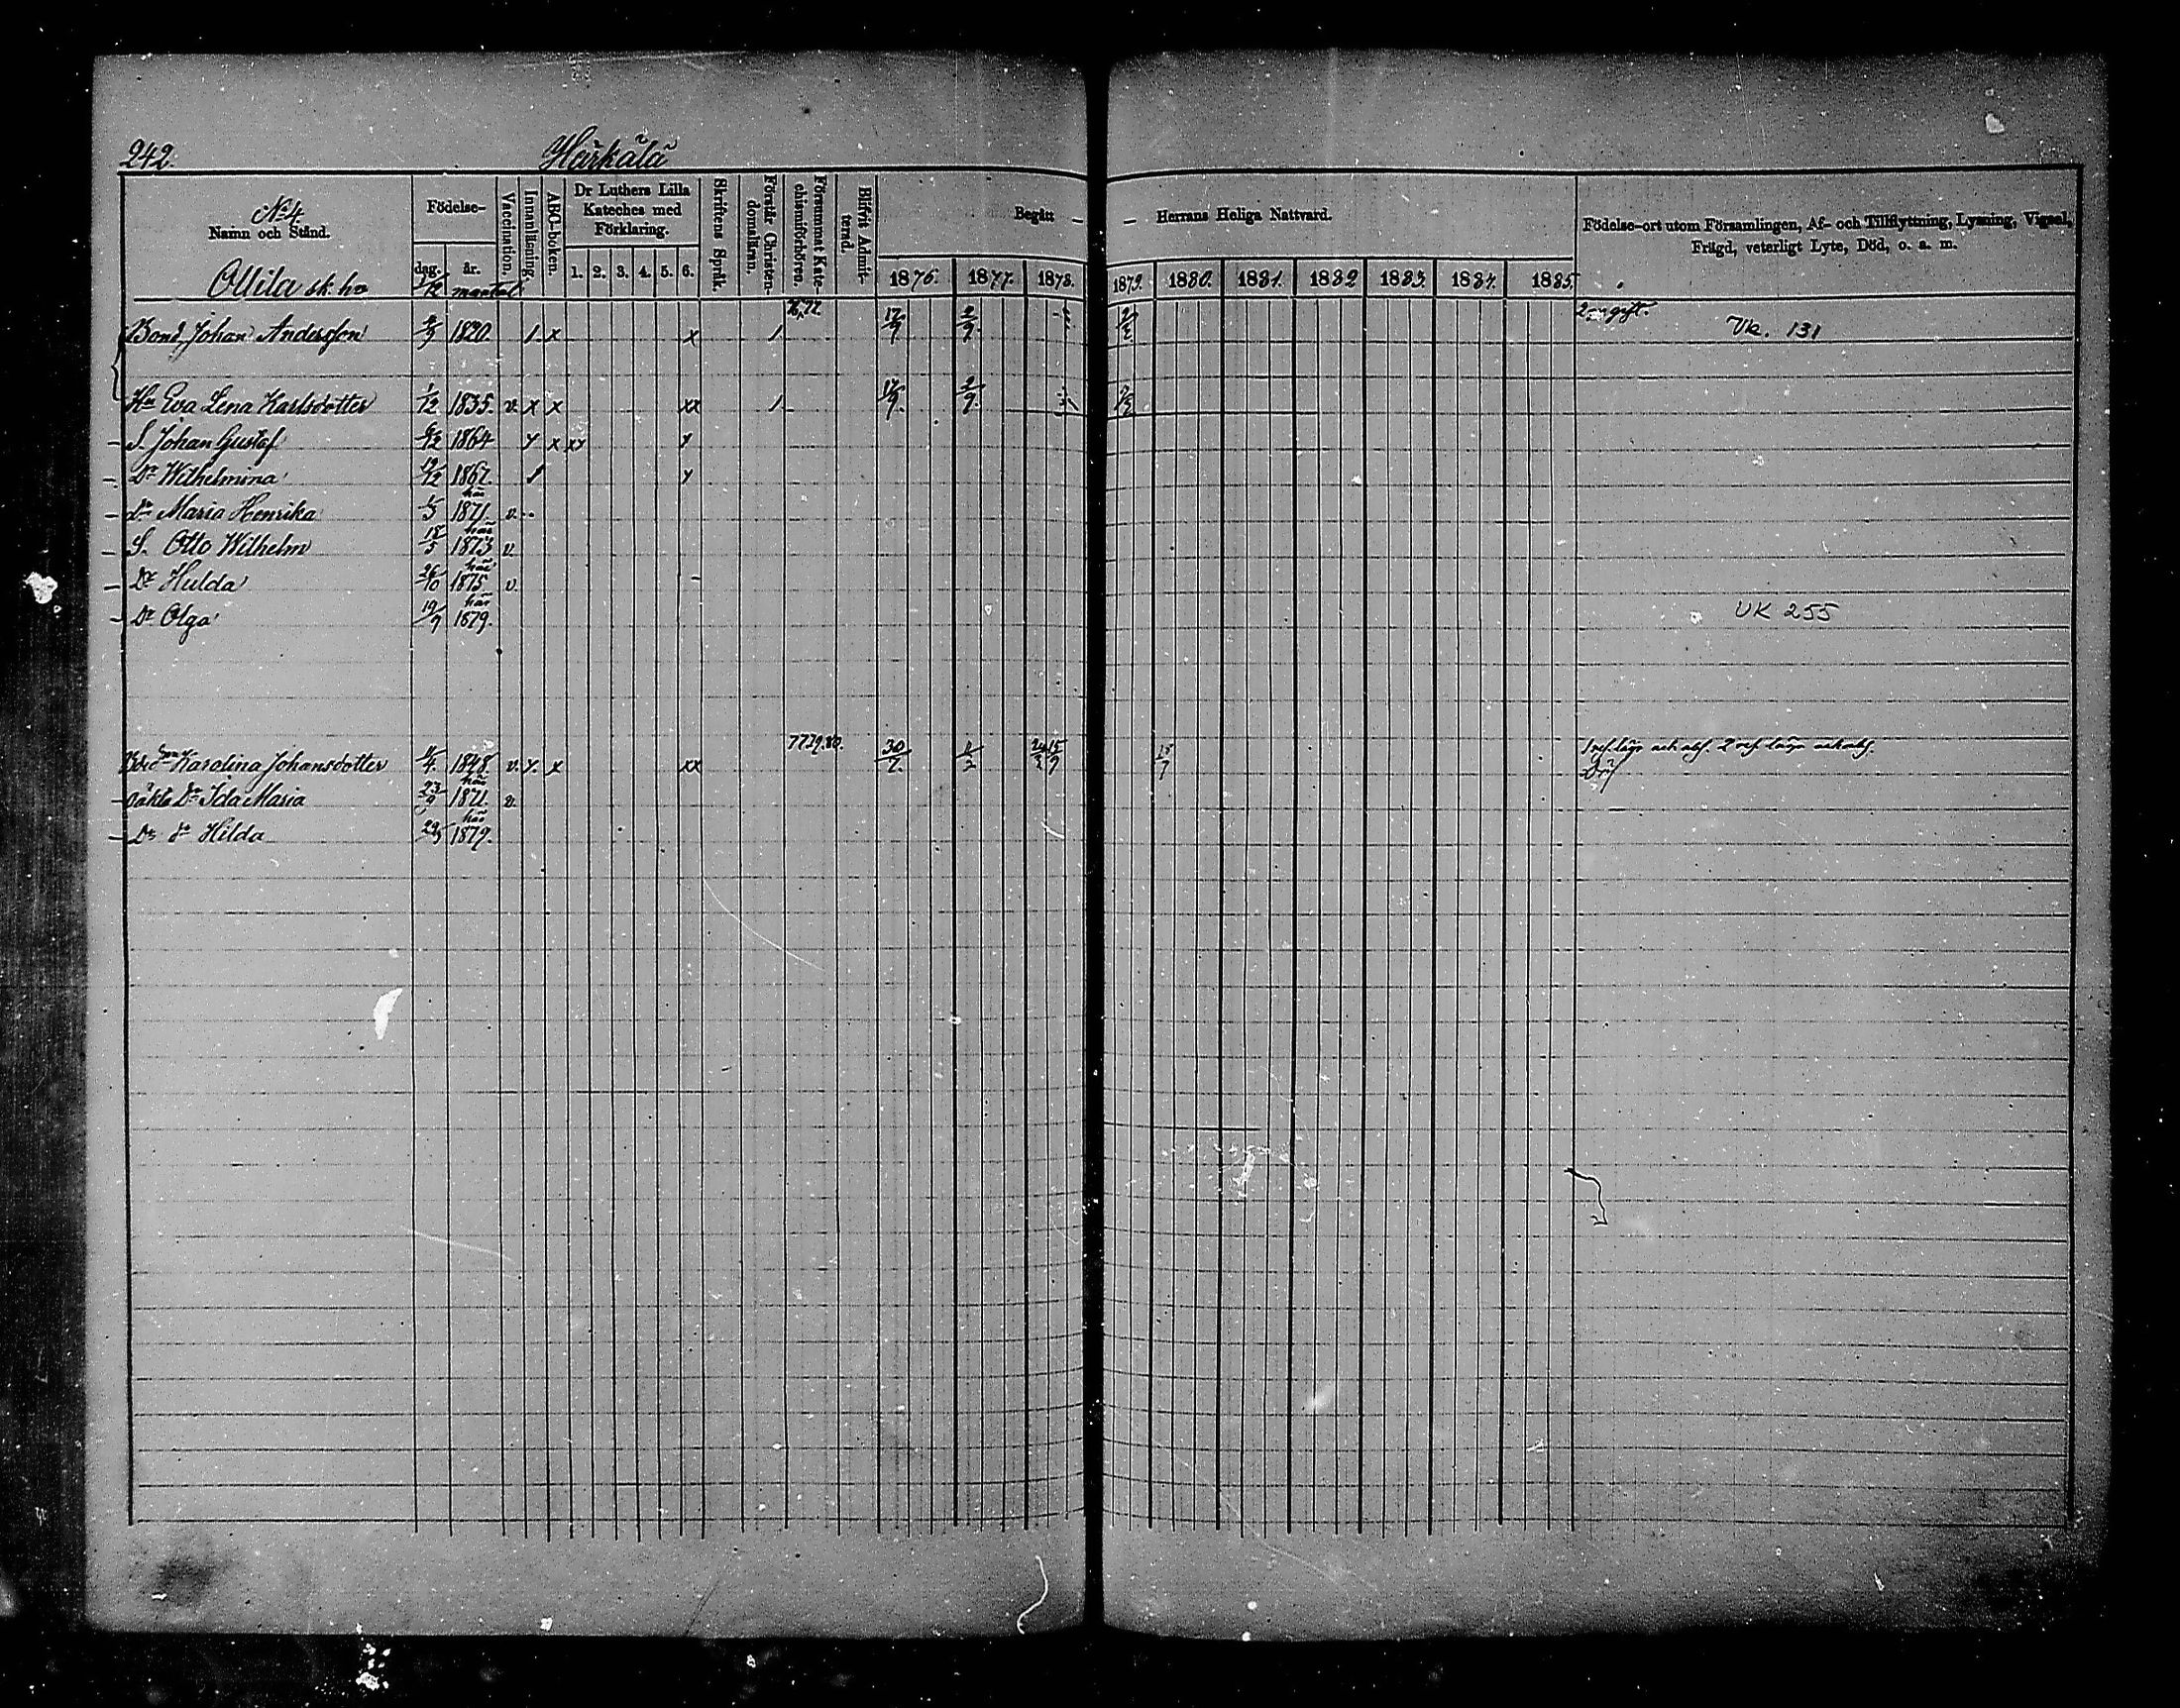 242. Härkälä
No 4.
Namn och Stånd.
Födelse-
dag. år.
Vaccination.
Innanläsning.
ABC-boken.
Dr Luthers Lilla
Kateches med
Förklaring.
1. 2. 3. 4. 5. 6.
Skriftens Språk.
Förstår Christen-
domsläran.
Försummat Kate-
chismiförhören.
Blifvit Admit-
terad.
Begått — — Herrans Heliga Nattvard.
1876. 1877. 1878. 1879. 1880. 1881. 1882. 1883. 1884. 1885.
Födelse-ort utom Församlingen, Af- och Tillflyttning, Lysning, Vigsel,
Frägd, veterligt Lyte, Död, o. s. m.
Ollila sk. h. 1/12 mantal
76,77. 2 ng gift.
Bond. Johan Andersson 1820. 1. x x 1. 17/9 2/9. Uk. 131
Hu Eva Lena Karlsdotter 1/12 1835. v. x x xx 1. 17/9. 2/9.
S. Johan Gustaf 1864 y x xx y
Dr Wilhelmina 12/12 1867. 1 y
här
Dr Maria Henrika 1/5 1871. v.
här
S. Otto Wilhelm 18/5 1873 v.
här
Dr Hulda 26/10 1875 v.
här
Dr Olga 19/9 1879. UK 255
77.79.80.
Karolina Johansdotter 4/4. 1848. v. y. x xx 30/7.
här
oäkta Dr Ida Maria 23/9 1871. v.
här
Dr Hilda 1879.